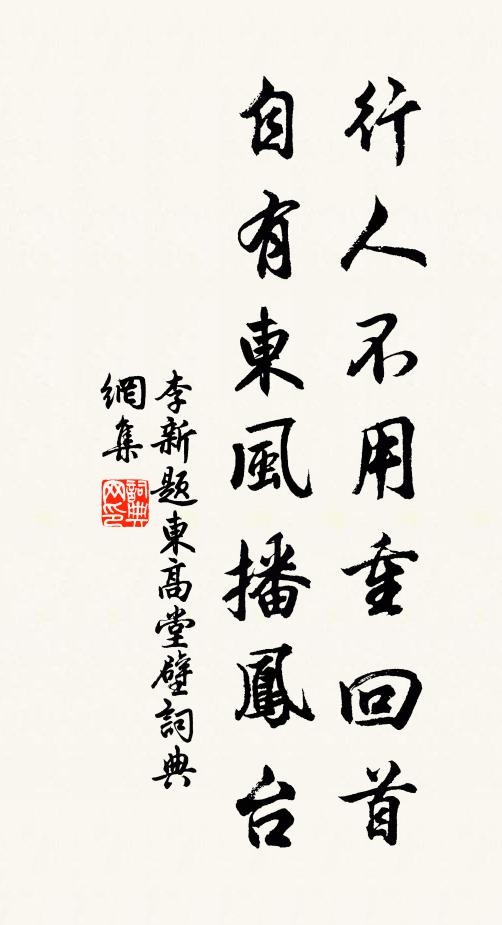 行人不用重回首
自有東風播鳳台
李新題東高堂壁詞典
網集
詞典
网印